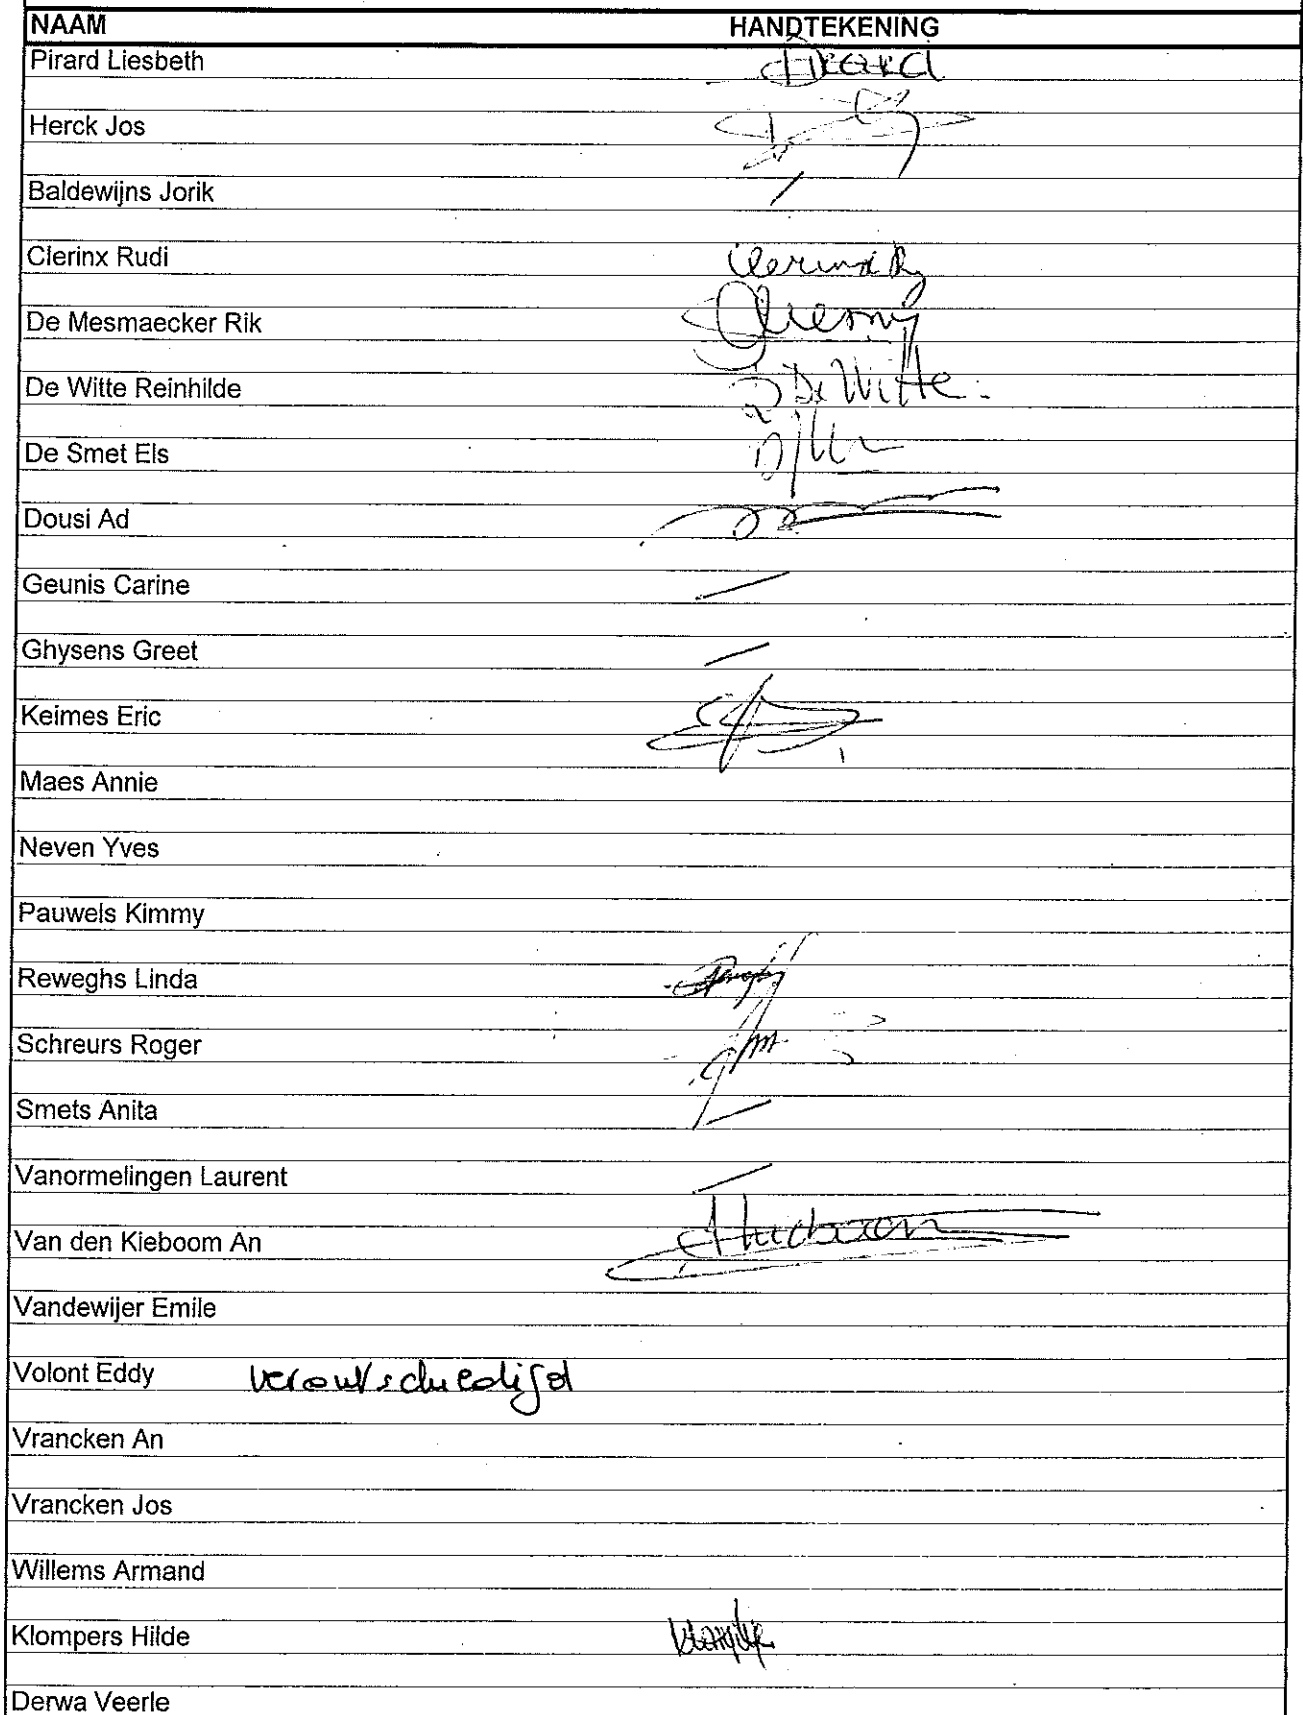 NAAM HANDTEKENING
Pirard Liesbeth
Herck Jos
Baldewijns Jorik
Clerinx Rudi
De Mesmaecker Rik
De Witte Reinhilde De Witte.
De Smet Els
Dousi Ad
Geunis Carine
Ghysens Greet
Keimes Eric
Maes Annie
Neven Yves
Pauwels Kimmy
Reweghs Linda
Schreurs Roger
Smets Anita
Vanormelingen Laurent
Van den Kieboom An
Vandewijer Emile
Volont Eddy verontschuldigd
Vrancken An
Vrancken Jos
Willems Armand
Klompers Hilde
Derwa Veerle